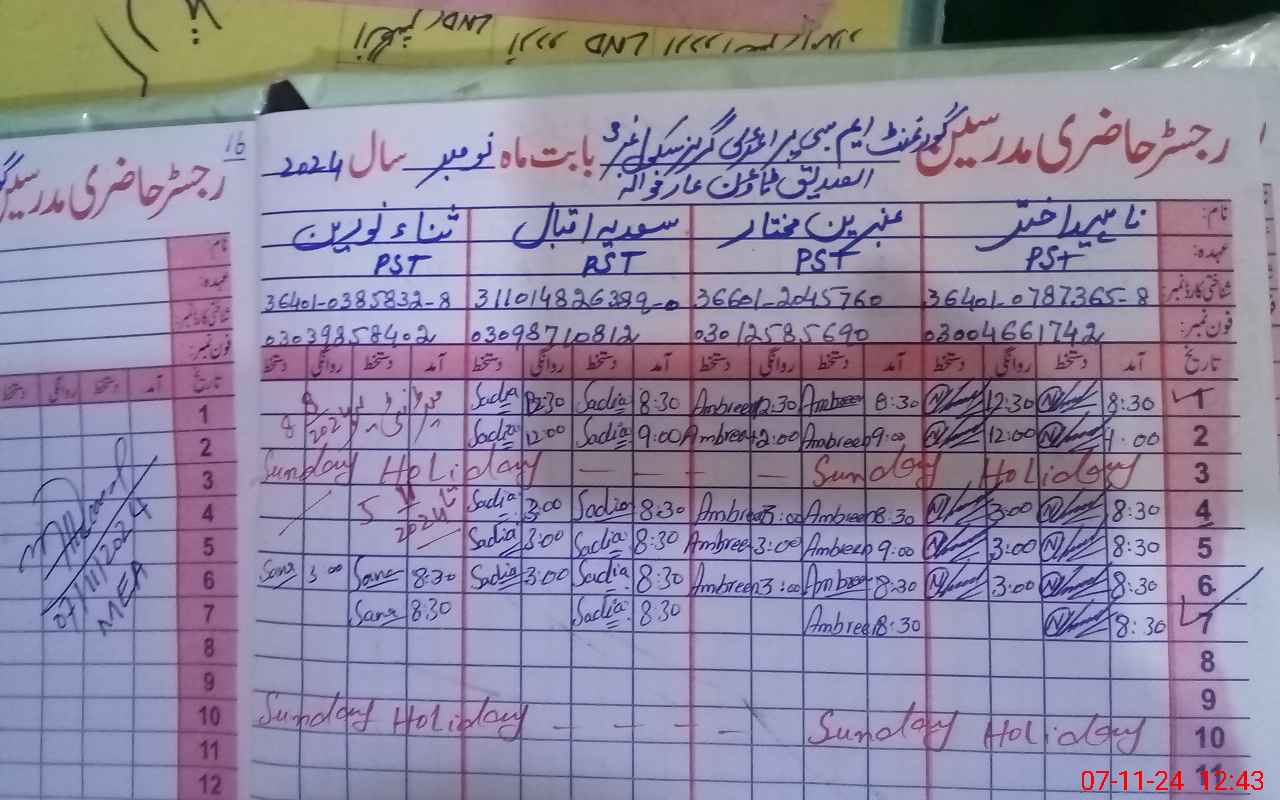 رجسٹر حاضری مدرسین گورنمنٹ ایم سی پرائمری گرلز سکول نمبر 3 بابت ماہ نومبر سال 2024
الصدیق ٹاؤن عارفوالہ
16
رجسٹر حاضری مدرسین
نام: ناہید اختر عنبرین مختار سعدیہ اقبال ثناء نورین
عہدہ: PST PST PST PST
شناختی کارڈ نمبر: 36401-0787365-8 36601-2045760 311014826389-0 36401-0385832-8
فون نمبر: 03004661742 03012585690 03098710812 03039858402
تاریخ آمد دستخط روانگی دستخط آمد دستخط روانگی دستخط آمد دستخط روانگی دستخط آمد دستخط روانگی دستخط
1 8:30 12:30 8:30 Ambreen 12:30 Ambreen 8:30 Sadia 12:30 Sadia
2 9:00 12:00 9:00 Ambreen 12:00 Ambreen 9:00 Sadia 12:00 Sadia
3 Sunday Holiday - - - - - Sunday Holiday
4 8:30 3:00 8:30 Ambreen 3:00 Ambreen 8:30 Sadia 3:00 Sadia
5 8:30 3:00 9:00 Ambreen 3:00 Ambreen 8:30 Sadia 3:00 Sadia
6 8:30 3:00 8:30 Ambreen 3:00 Ambreen 8:30 Sadia 3:00 Sadia 8:30 Sana 3:00 Sana
7 8:30 8:30 Ambreen 8:30 Sadia 8:30 Sana
8
9
10 Sunday Holiday - - - - Sunday Holiday
11
نام:
عہدہ:
شناختی کارڈ نمبر:
فون نمبر:
تاریخ آمد دستخط روانگی دستخط
1
2
3
4
5
6
7
8
9
10
11
12
07/11/2024
MEA
07-11-24 12:43